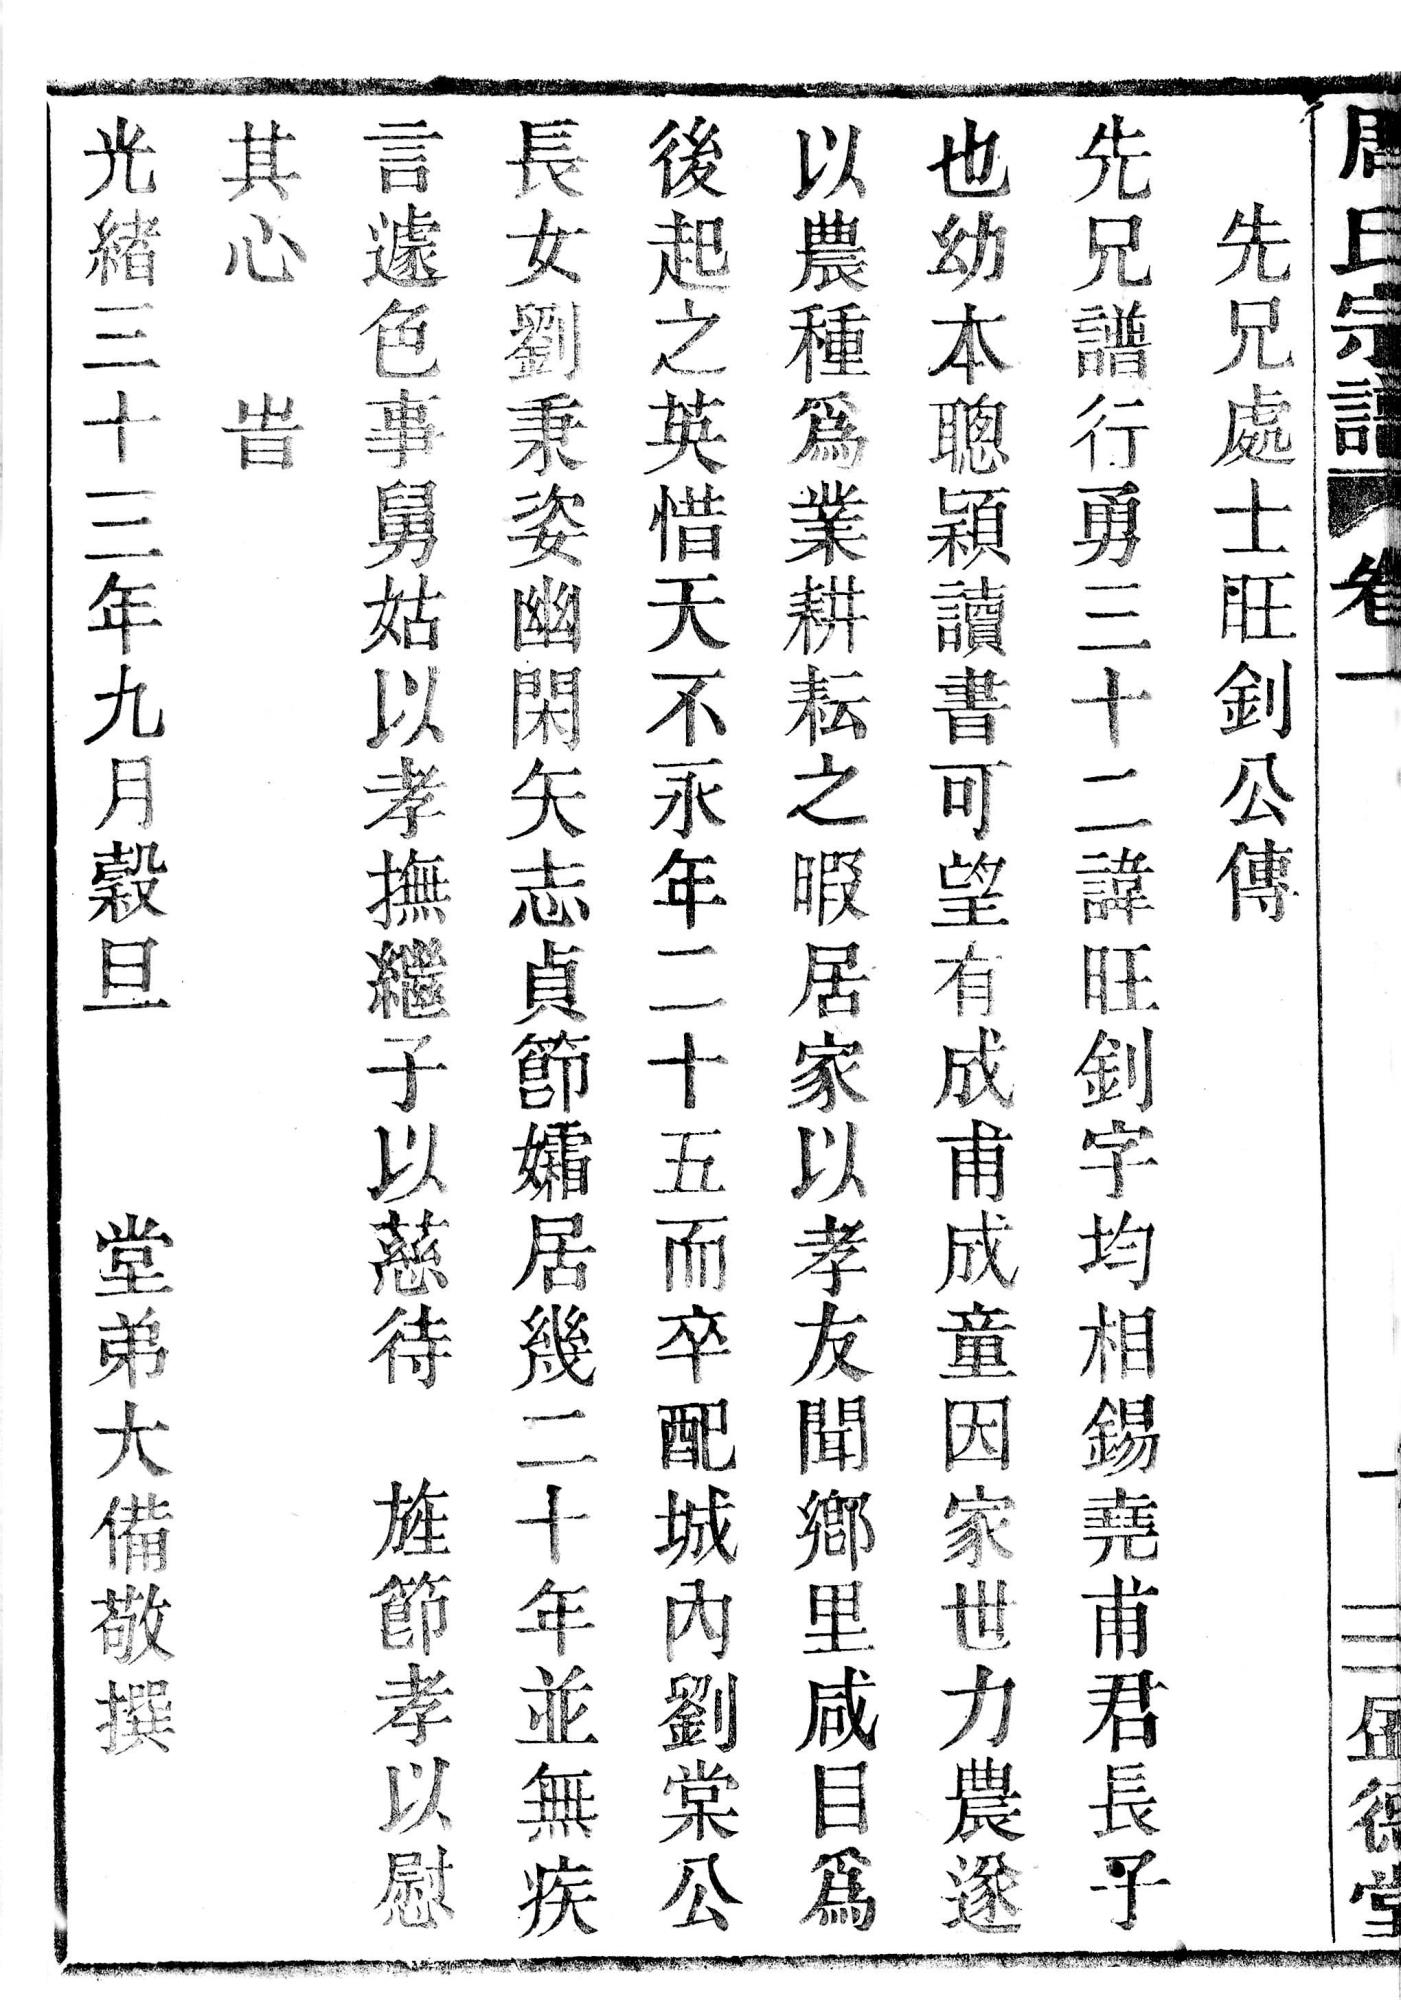 周氏宗譜 卷一
先兄處士旺釗公傳
先兄譜行勇三十二諱旺釗字均相錫堯甫君長子
也幼本聰穎讀書可望有成甫成童因家世力農遂
以農種爲業耕耘之暇居家以孝友聞鄉里咸目爲
後起之英惜天不永年二十五而卒配城內劉棠公
長女劉秉姿幽閑矢志貞節孀居幾二十年並無疾
言遽色事舅姑以孝撫繼子以慈待 旌節孝以慰
其心 旹
光緒三十三年九月穀旦 堂弟大備敬撰
德堂